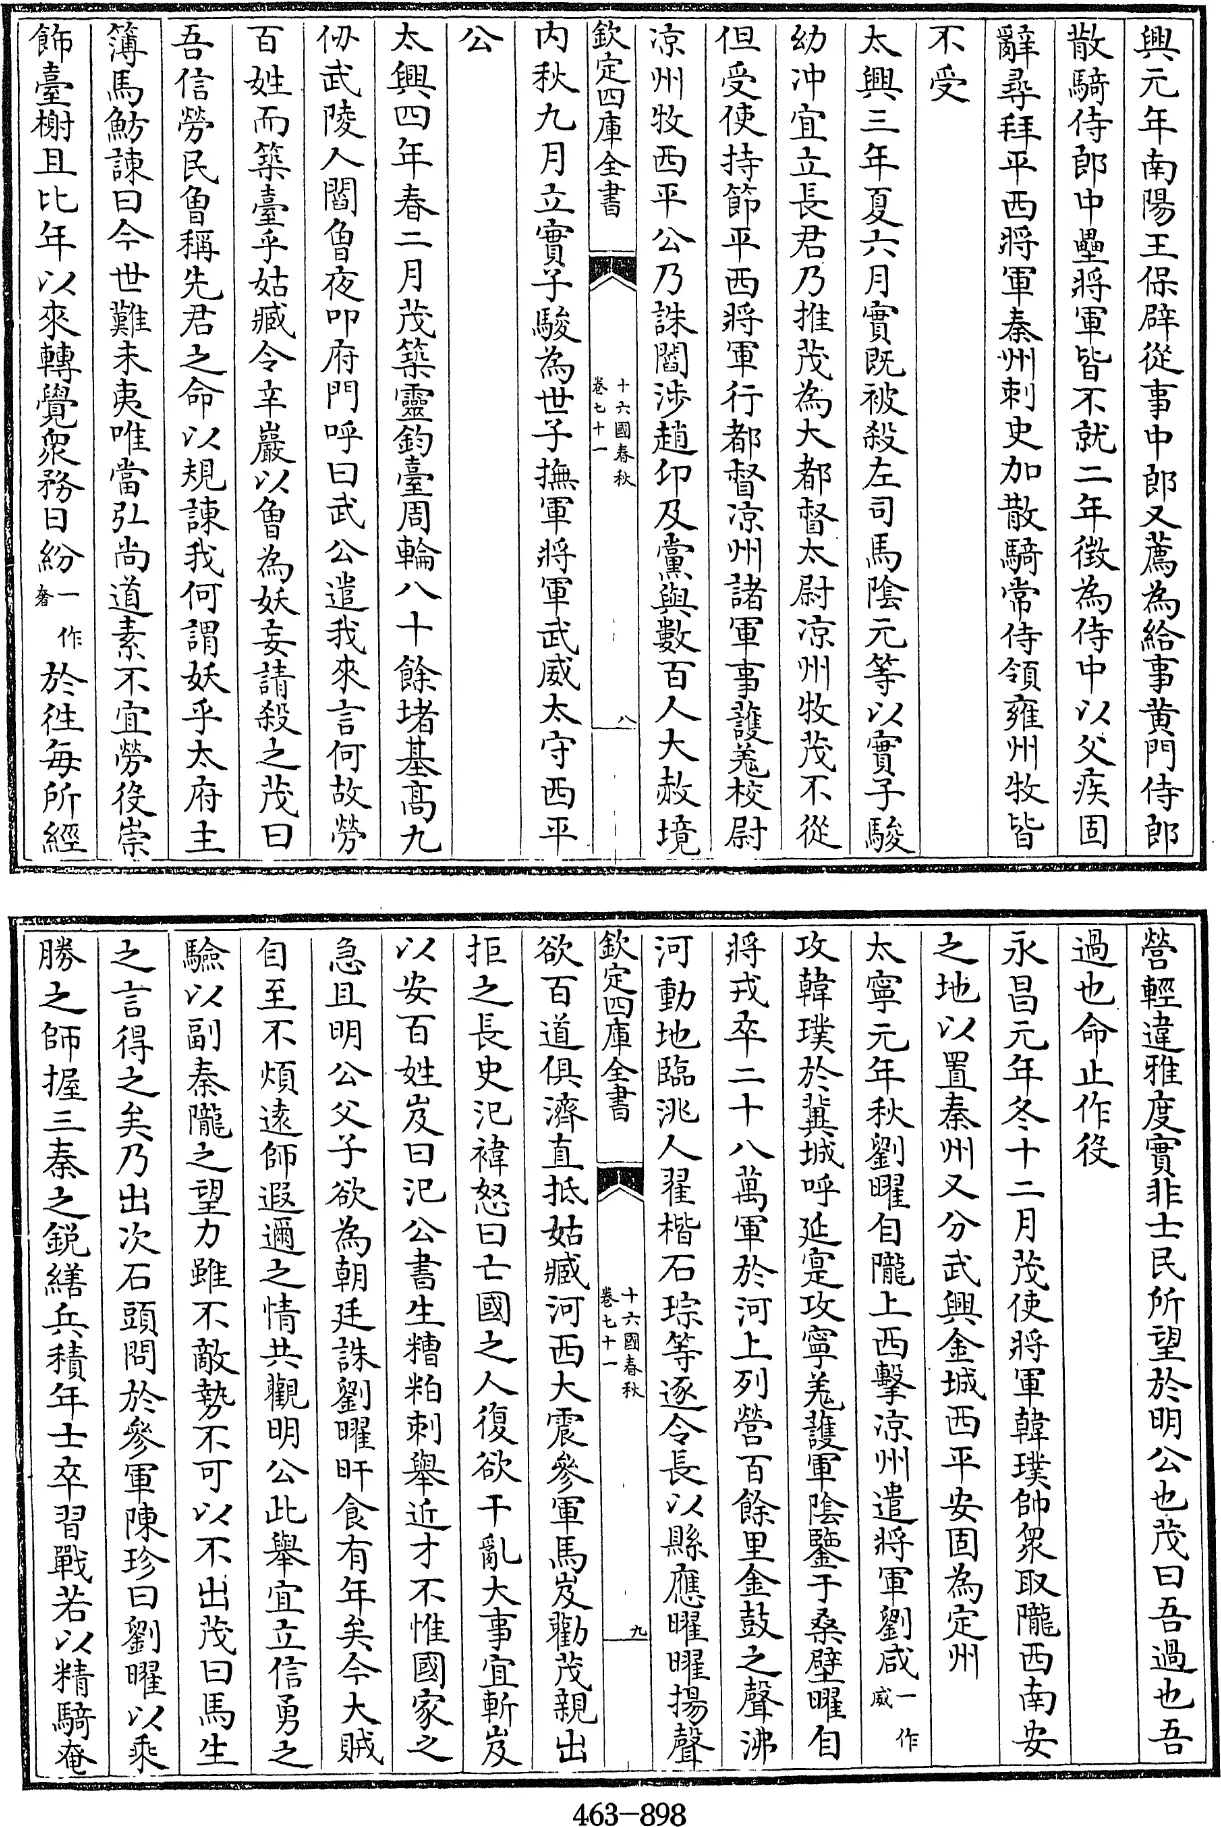 興元年南陽王保辟從事中郎又薦為給事黄門侍郎
散騎侍郎中壘將軍皆不就二年徴為侍中以父疾固
辭尋拜平西將軍秦州刺史加散騎常侍領雍州牧皆
不受
太興三年夏六月實既被殺左司馬陰元等以實子駿
幼冲宜立長君乃推茂為大都督太尉凉州牧茂不從
但受使持節平西將軍行都督凉州諸軍事護羌校尉
凉州牧西平公乃誅閻涉趙卬及黨與數百人大赦境
欽定四庫全書
十六國春秋
卷七十一
八
内秋九月立實子駿為世子撫軍將軍武威太守西平
公
太興四年春二月茂築靈鈞臺周輪八十餘堵基髙九
仭武陵人閻曾夜叩府門呼曰武公遣我來言何故勞
百姓而築臺乎姑臧令辛巖以曾為妖妄請殺之茂曰
吾信勞民曾稱先君之命以規諫我何謂妖乎太府主
簿馬魴諫曰今世難未夷唯當弘尚道素不宜勞役崇
飾臺榭且比年以來轉覺衆務日紛一作奢於徃每所經
營輕違雅度實非士民所望於明公也茂曰吾過也吾
過也命止作役
永昌元年冬十二月茂使將軍韓璞帥衆取隴西南安
之地以置秦州又分武興金城西平安固為定州
太寧元年秋劉曜自隴上西擊凉州遣將軍劉咸一作威
攻韓璞於冀城呼延寔攻寧羌護軍陰鑒于桑壁曜自
將戎卒二十八萬軍於河上列營百餘里金鼓之聲沸
河動地臨洮人翟楷石琮等逐令長以縣應曜曜揚聲
欽定四庫全書
十六國春秋
卷七十一
九
欲百道俱濟直抵姑臧河西大震參軍馬岌勸茂親出
拒之長史氾褘怒曰亡國之人復欲干亂大事宜斬岌
以安百姓岌曰氾公書生糟粕刺舉近才不惟國家之
急且明公父子欲為朝廷誅劉曜旰食有年矣今大賊
自至不煩逺師遐邇之情共觀明公此舉宜立信勇之
驗以副秦隴之望力雖不敵勢不可以不出茂曰馬生
之言得之矣乃出次石頭問於參軍陳珍曰劉曜以乘
勝之師握三秦之鋭繕兵積年士卒習戰若以精騎奄
463-898